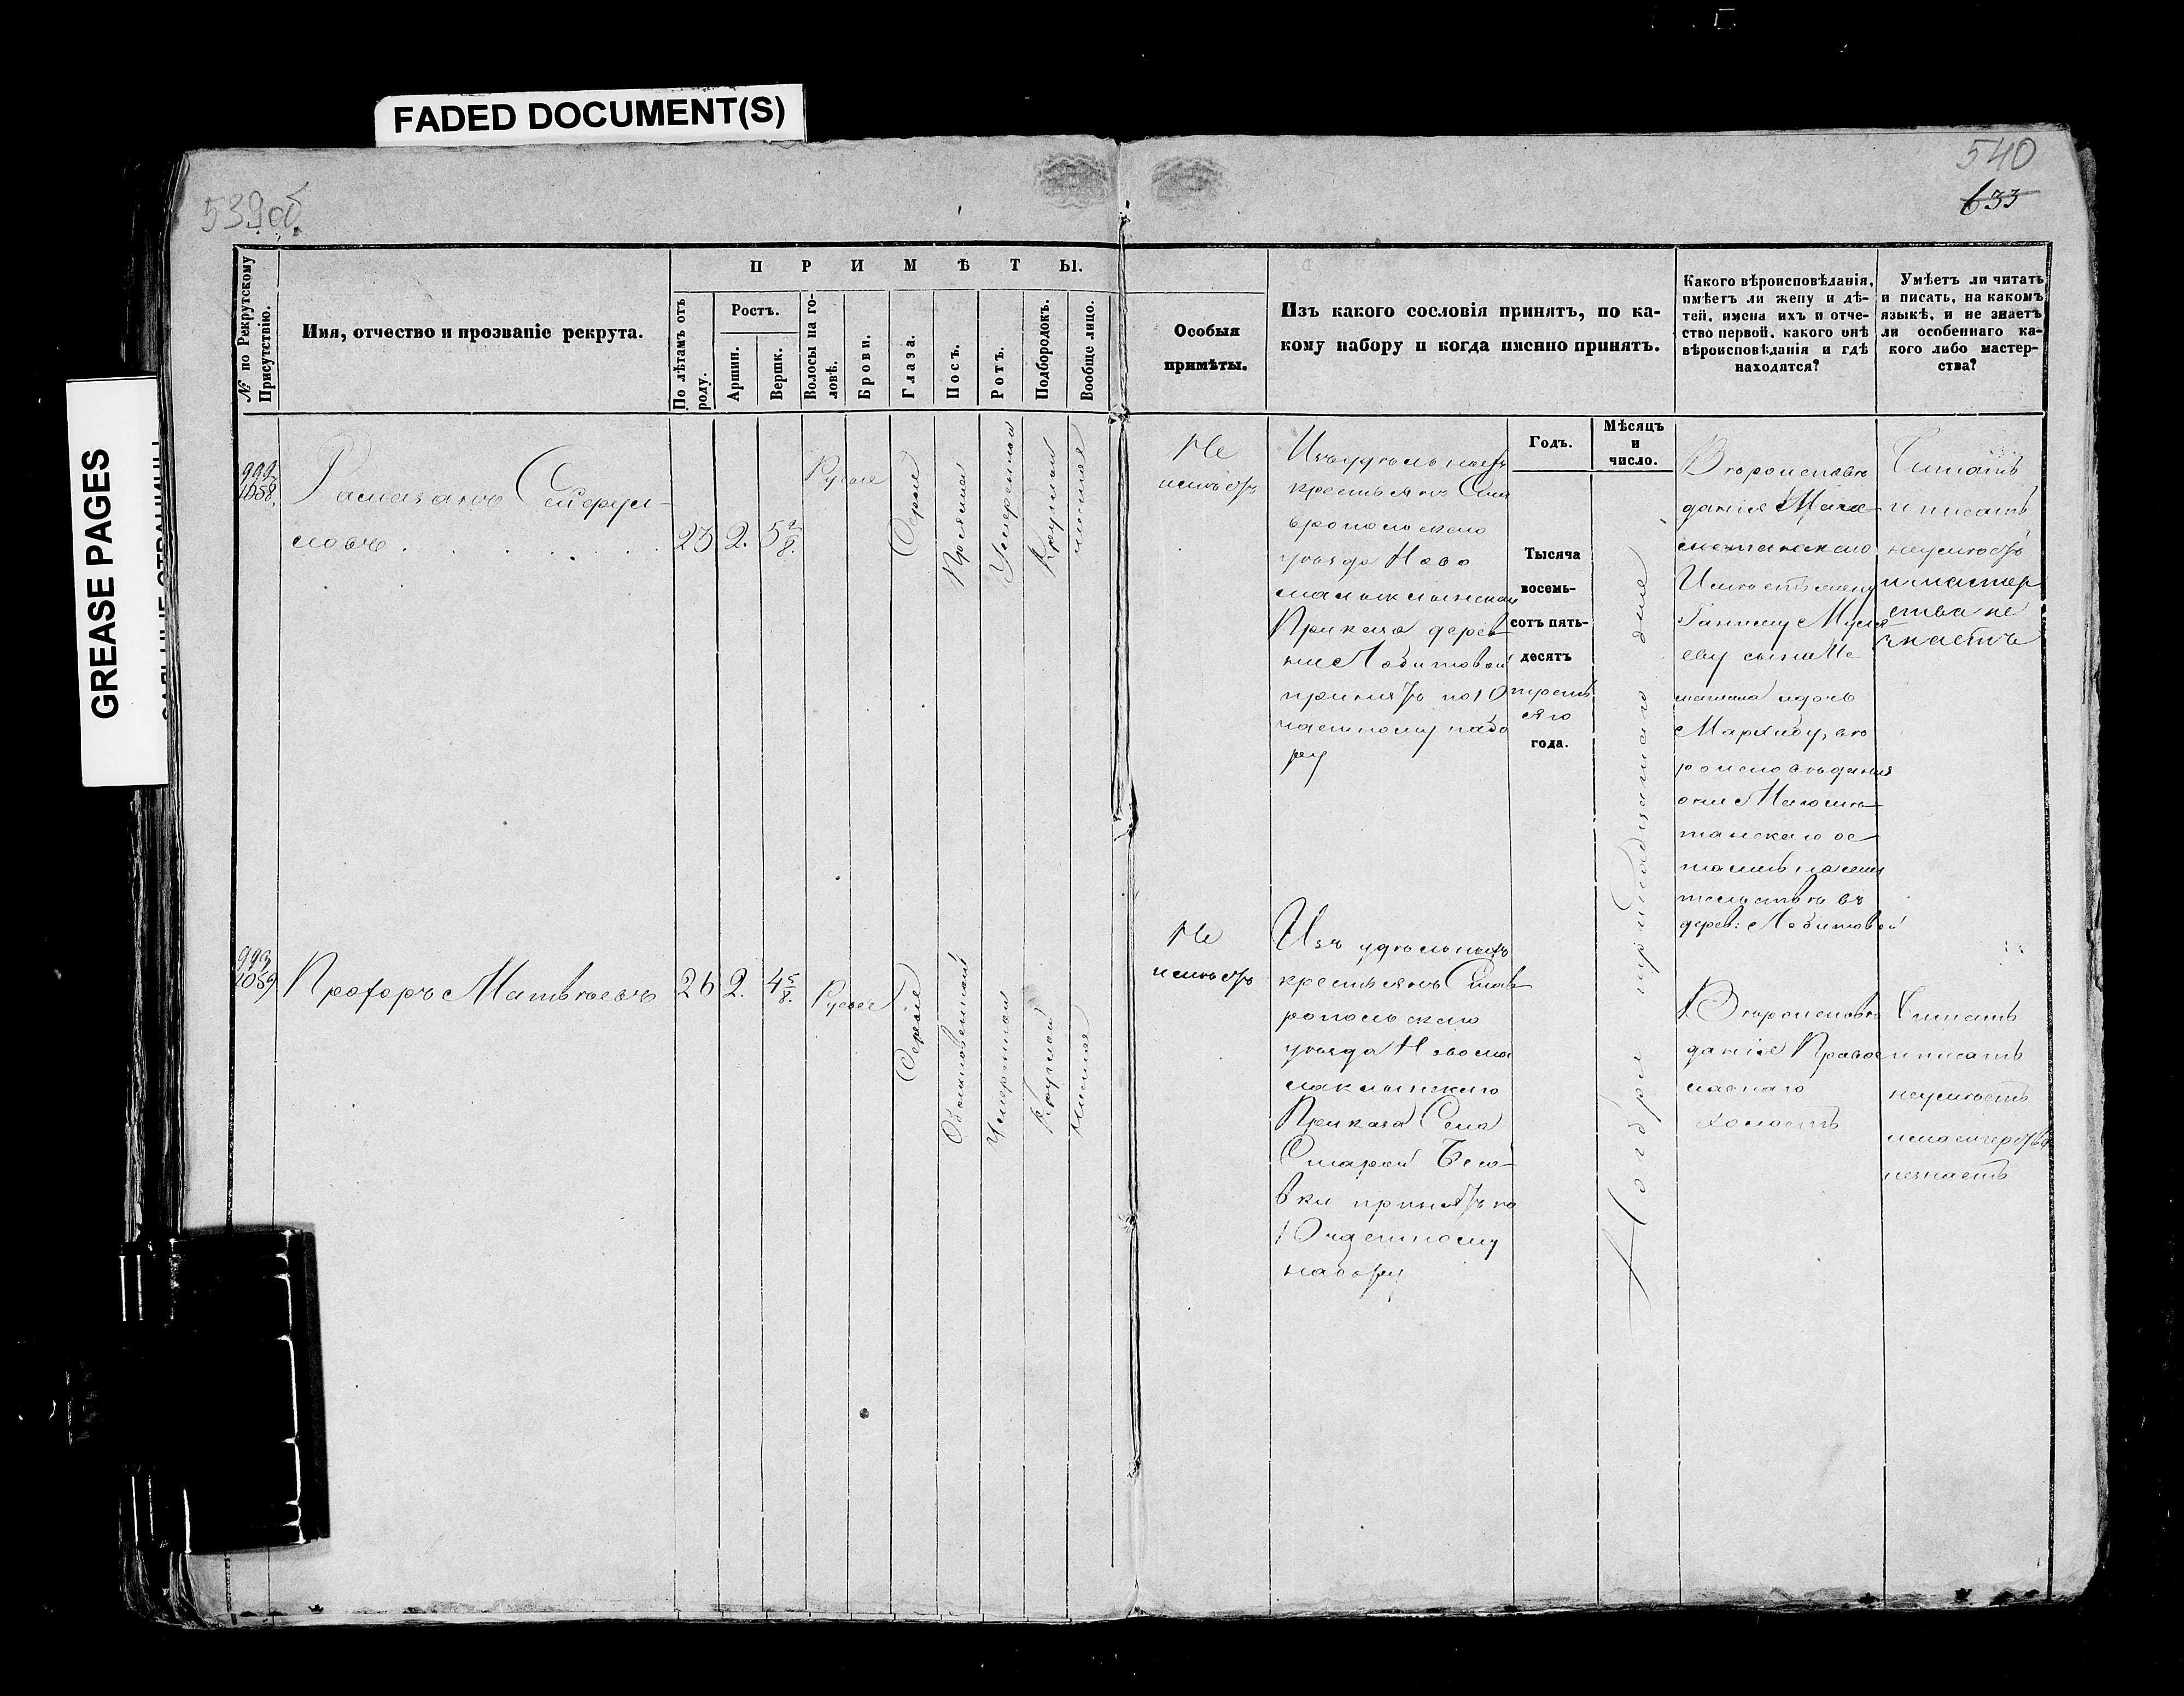 FADED DOCUMENT(S)
GREASE PAGES
539 об.
540
633
№ по Рекрутскому Присутствію.
Имя, отчество и прозваніе рекрута.
П Р И М Ѣ Т Ы.
По лѣтамъ отъ роду.
Ростъ.
Аршин.
Вершк.
Волосы на го-
ловѣ.
Брови.
Глаза.
Носъ.
Ротъ.
Подбородокъ.
Вообще лицо.
Особыя
примѣты.
Изъ какого сословія принятъ, по ка-
кому набору и когда именно принятъ.
Годъ.
Мѣсяцъ
и
число.
Какого вѣроисповѣданія,
имѣетъ ли жену и дѣ-
тей, имена ихъ и отче-
ство первой, какого онѣ
вѣроисповѣданія и гдѣ
находятся?
Умѣетъ ли читать
и писать, на какомъ
языкѣ, и не знаетъ
ли особеннаго ка-
кого либо мастер-
ства?
992
1058.
Рамазанъ
ловъ
23
2.
Русые
Сѣрые
Прямой
Умеренной
Круглой
чистое
Не
имѣетъ
Изъ удѣльныхъ
крестьянъ Ста
вропольскаго
уѣзда Ново
малыклинскаго
Приказа дерев
ни Абдитовой
принятъ по 10
частному набо
ру
Тысяча
восемь-
сотъ пять-
десятъ
третья
яго
года.
Ноября тритцатаго дня
Вѣроисповѣ
данія Мага
метанскаго
Имѣетъ жену
дочь
вѣ
роисповѣданія
они Магоме
танскаго ос
тались на жи
тельствѣ въ
дерев:
Читать
и писать
неумѣетъ
и мастер
ства не
знаетъ
993
1059
Прохоръ Матвѣевъ
26
2.
4 5/8.
Русые
Сѣрые
Обыкновенной
Умеренной
Круглой
чистое
Не
имѣетъ
Изъ удѣльныхъ
крестьянъ Став
ропольскаго
уѣзда Новома
лыклинскаго
Приказа Села
Старой Бесо-
вки принятъ по
10 частному
набору
Вѣроисповѣ
данія Правос
лавнаго
холостъ
Читать
и писать
неумѣетъ
и мастерства
незнаетъ